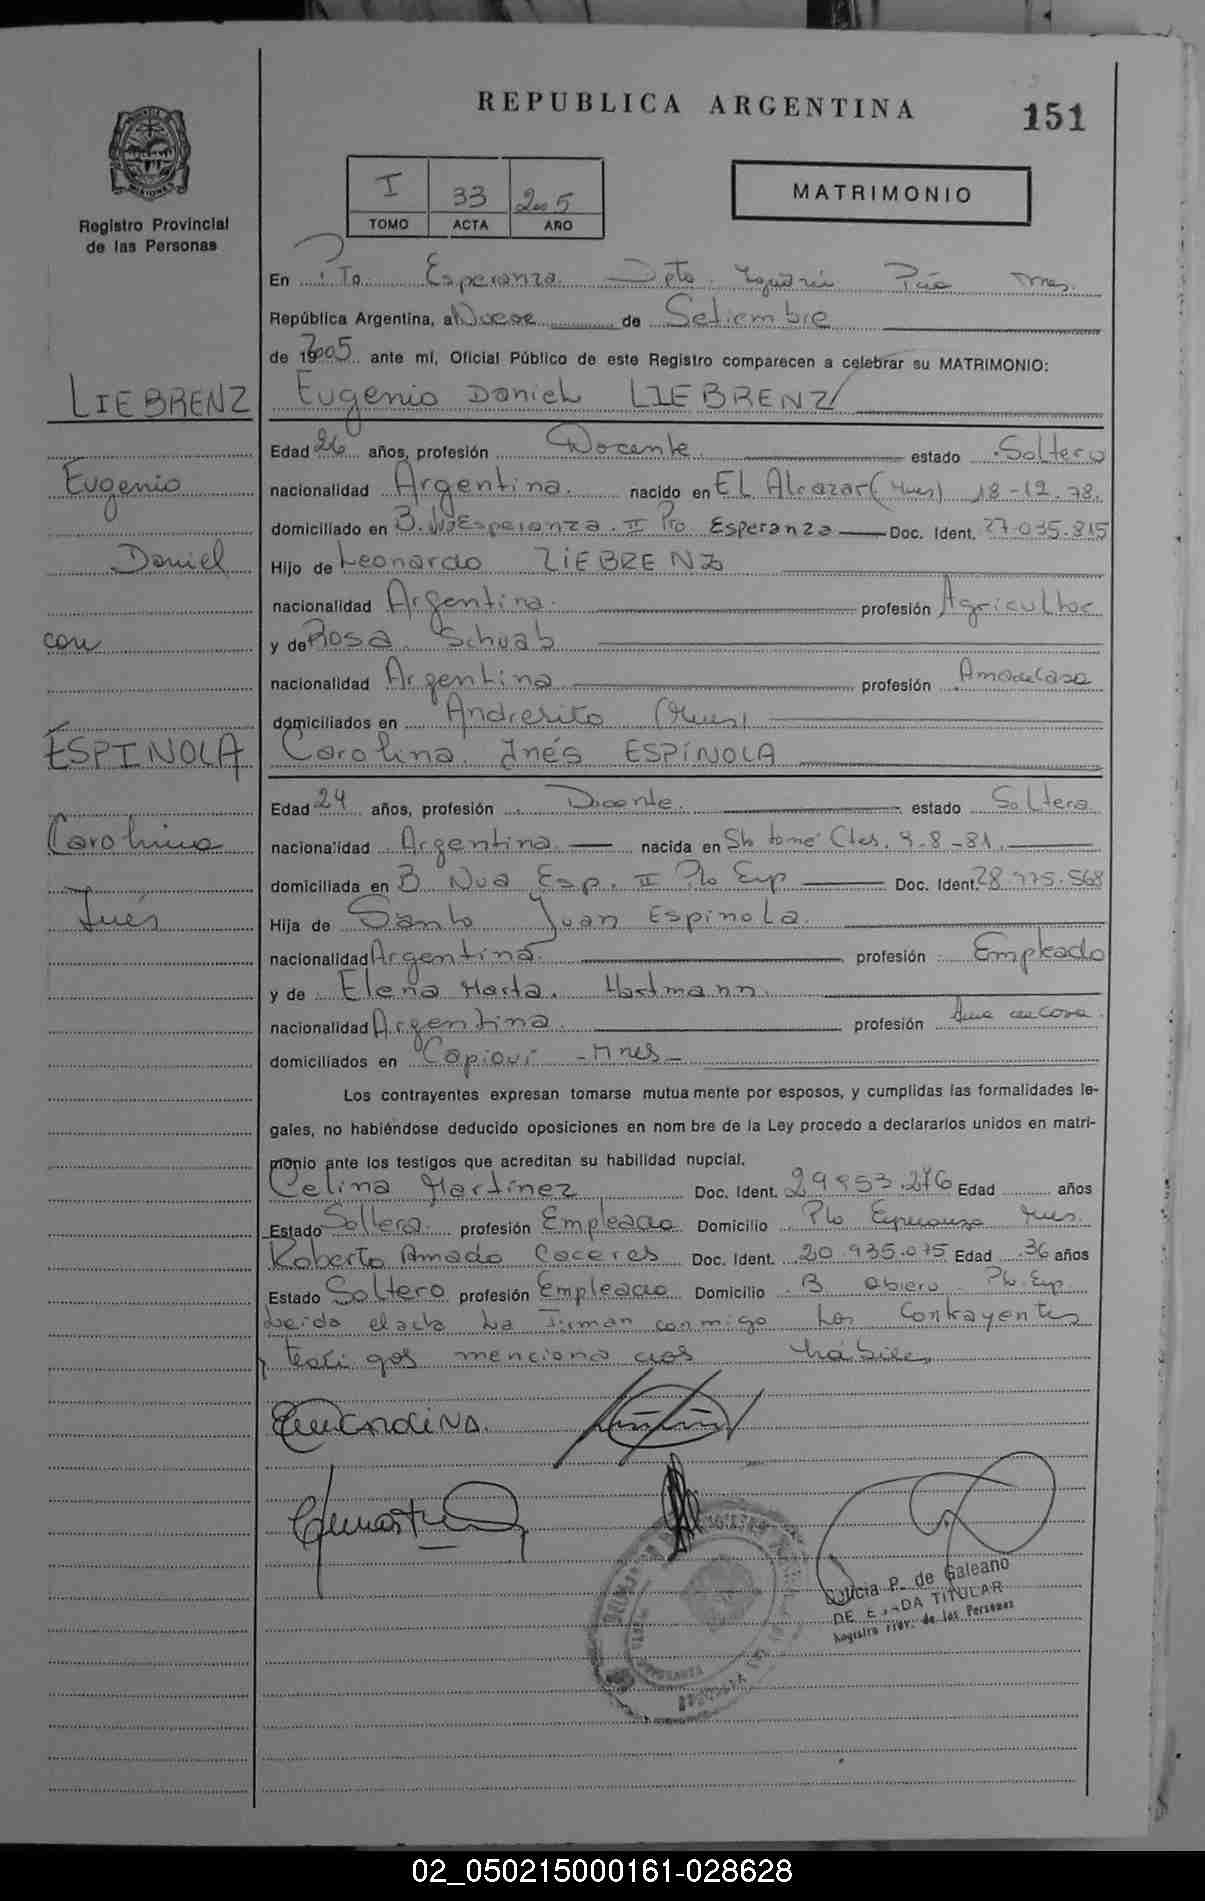 REPUBLICA ARGENTINA
151
MISIONES
Registro Provincial
de las Personas
I 33 2005
TOMO ACTA AÑO
MATRIMONIO
En Pto. Esperanza Dpto. Iguazú Pcia Mnes.
República Argentina, a Nueve de Setiembre
de 192005 ante mí, Oficial Público de este Registro comparecen a celebrar su MATRIMONIO:
LIEBRENZ
Eugenio Daniel LIEBRENZ
Edad 26 años, profesión Docente. estado Soltero
Eugenio
nacionalidad Argentina. nacido en EL Alcazar (Mnes) 18-12.78.
domiciliado en B. Esperanza. II Pto. Esperanza Doc. Ident. 27.035.815
Daniel
Hijo de Leonardo LIEBRENZ
nacionalidad Argentina. profesión Agricultor
con
y de Rosa Schuab
nacionalidad Argentina profesión Ama de Casa
domiciliados en Andresito (Mnes)
ESPINOLA
Carolina Inés ESPÍNOLA
Edad 24 años, profesión Docente. estado Soltera
Carolina
nacionalidad Argentina. nacida en Sto tomé Ctes. 9-8-81.
domiciliada en B Nva Esp. II Pto Esp Doc. Ident. 28.975.568
Inés
Hija de Santo Juan Espinola.
nacionalidad Argentina. profesión Empleado
y de Elena Marta. Hartmann.
nacionalidad Argentina. profesión Ama de Casa.
domiciliados en Capioví - Mnes -
Los contrayentes expresan tomarse mutua mente por esposos, y cumplidas las formalidades le-
gales, no habiéndose deducido oposiciones en nom bre de la Ley procedo a declararlos unidos en matri-
monio ante los testigos que acreditan su habilidad nupcial.
Celina Martínez Doc. Ident. 29.953.276 Edad años
Estado Soltera. profesión Empleada Domicilio Pto Esperanza Mnes.
Roberto Amado Caceres Doc. Ident. 20.935.075 Edad 36 años
Estado Soltero profesión Empleado Domicilio B obrero Pto. Esp.
Leida el acta La Firman conmigo Los Contrayentes
y testigos mencionados hábiles
P. de Galeano
TITULAR
Registro Prov. de las Personas
02_050215000161-028628